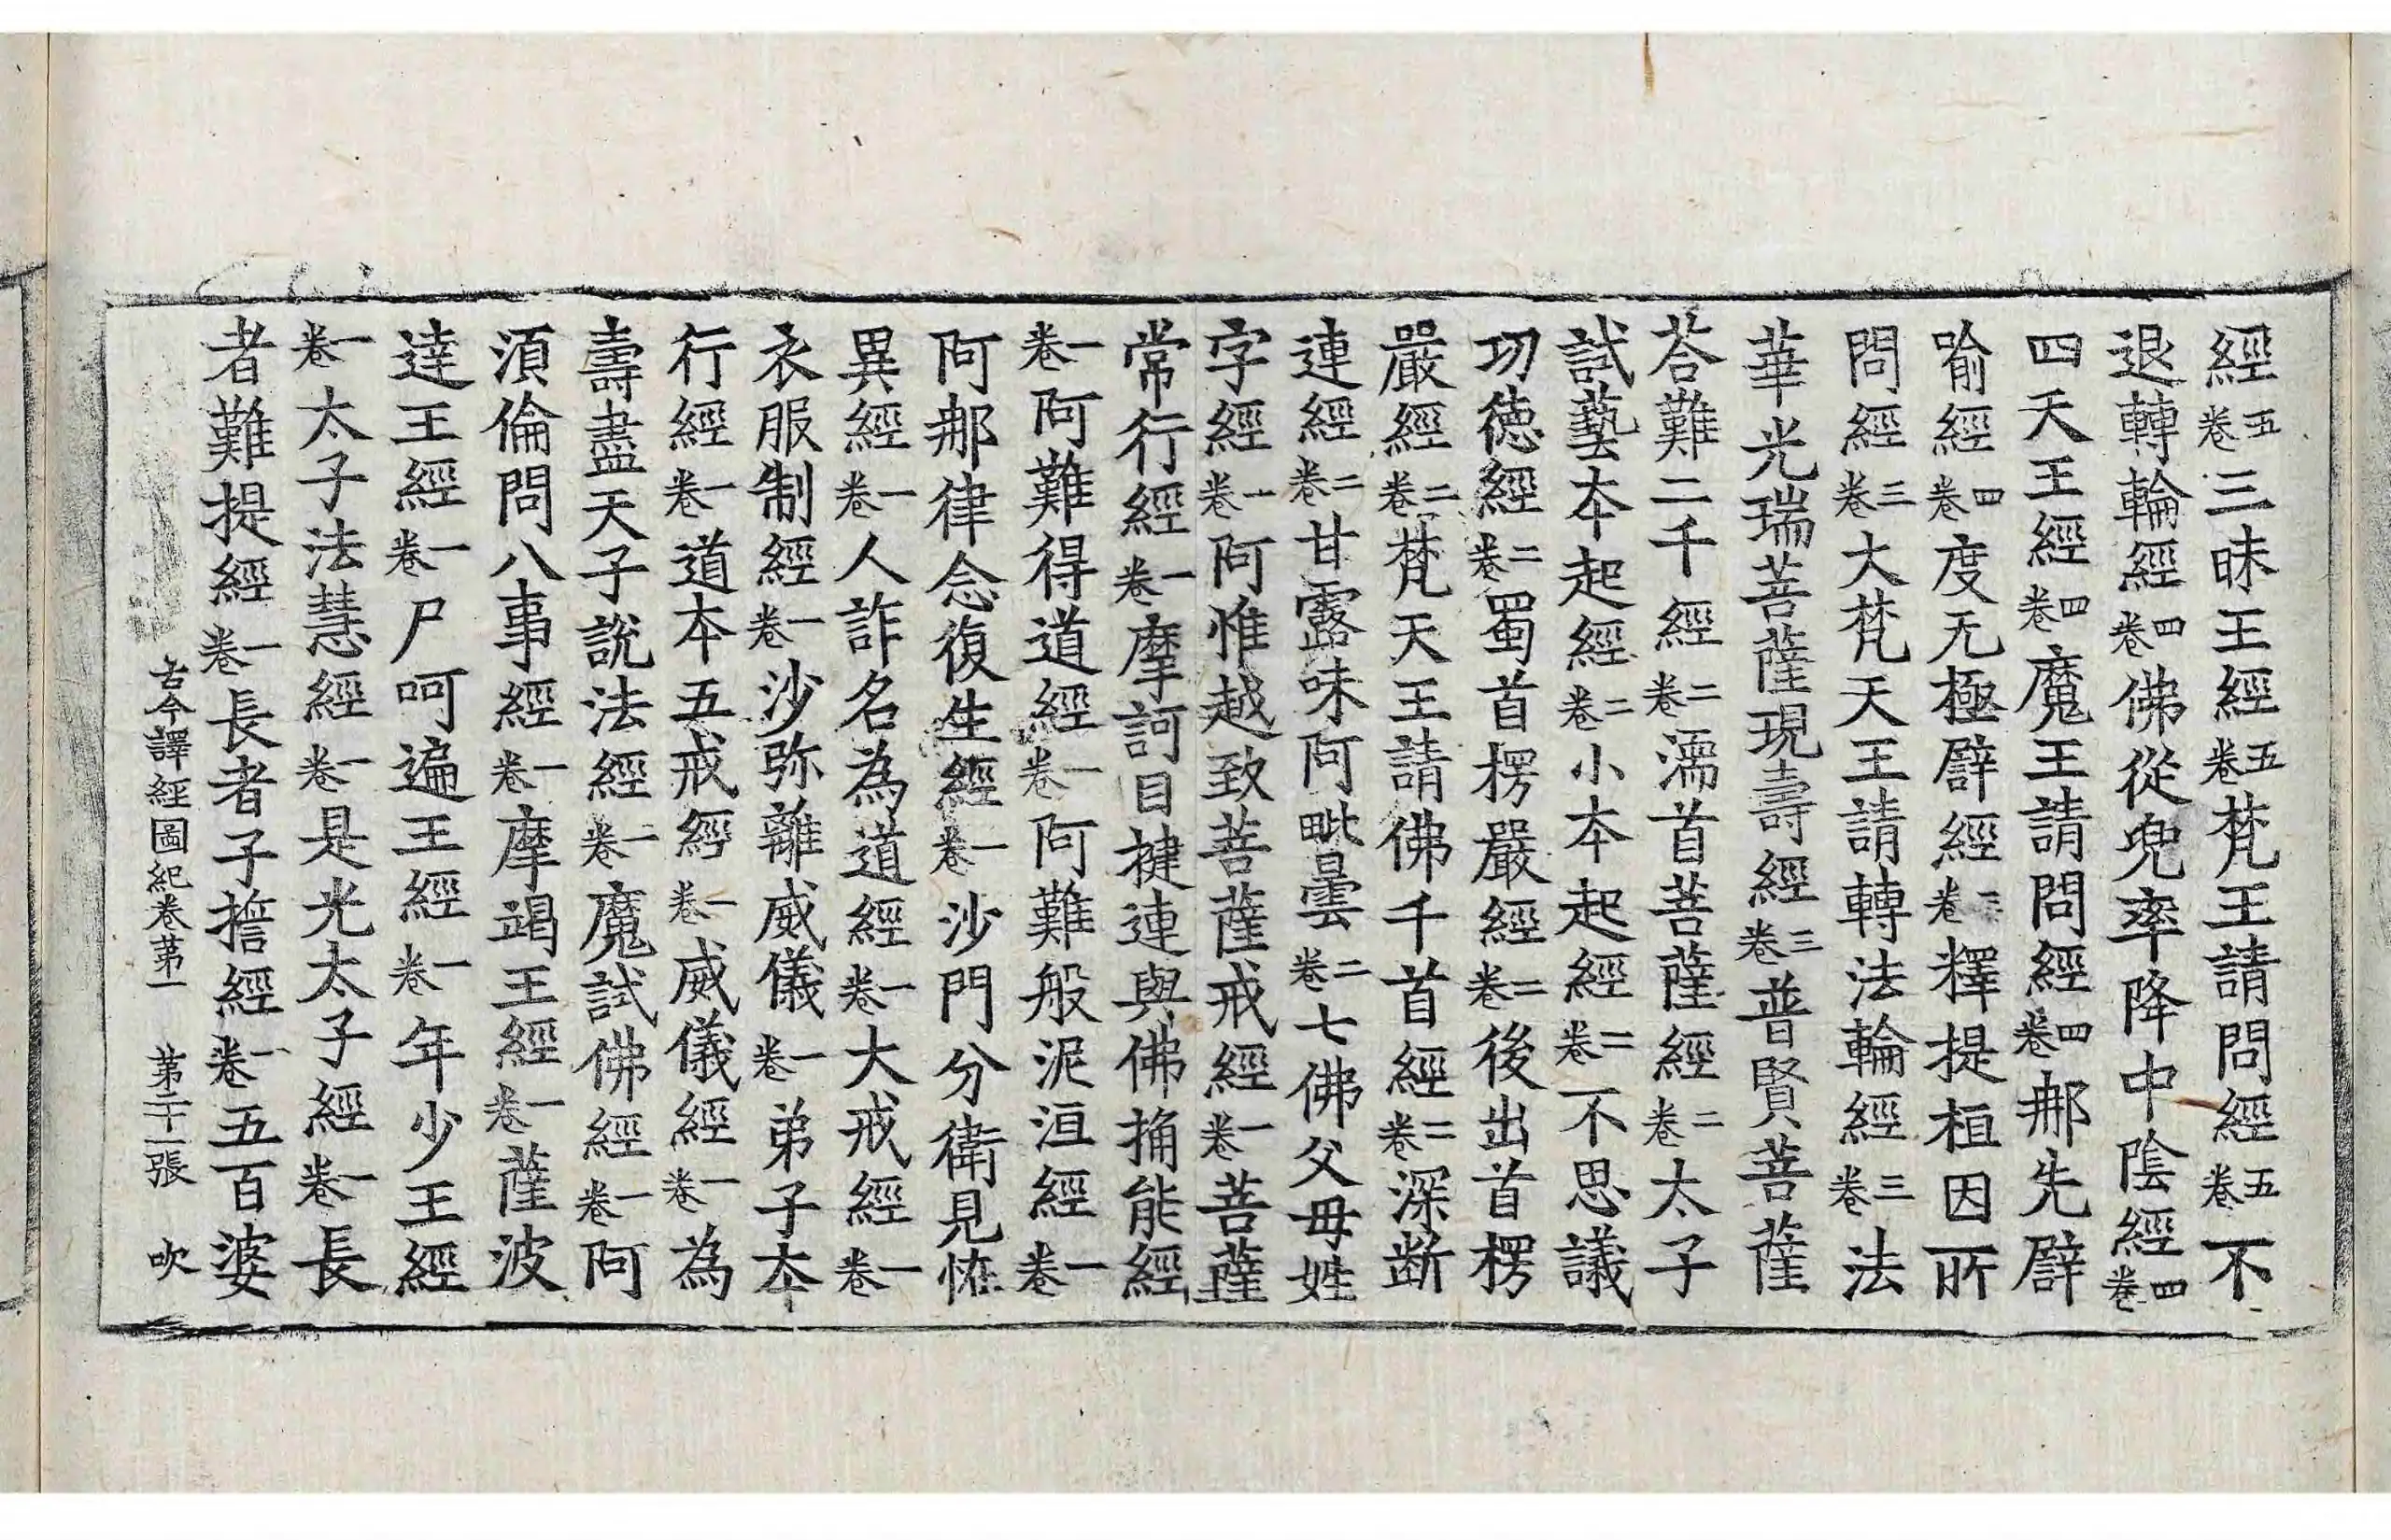 經五卷三昧王經五卷梵王請問經五卷不
退轉輪經四卷佛從兜率降中陰經四卷
四天王經四卷魔王請問經四卷郍先譬
喻經四卷度无極譬經三卷釋提桓因所
問經三卷大梵天王請轉法輪經三卷法
華光瑞菩薩現壽經三卷普賢菩薩
荅難二千經二卷濡首菩薩經二卷太子
試藝本起經二卷小本起經二卷不思議
功德經二卷蜀首楞嚴經二卷後出首楞
嚴經二卷梵天王請佛千首經二卷深断
連經二卷甘露味阿毗曇二卷七佛父母姓
字經一卷阿惟越致菩薩戒經一卷菩薩
常行經一卷摩訶目揵連與佛捔能經
一卷阿難得道經一卷阿難般泥洹經一卷
阿郍律念復生經一卷沙門分衛見恠
異經一卷人詐名為道經一卷大戒經一卷
衣服制經一卷沙弥離威儀一卷弟子本
行經一卷道本五戒經一卷威儀經一卷為
壽盡天子說法經一卷魔試佛經一卷阿
須倫問八事經一卷摩竭王經一卷薩波
達王經一卷尸呵遍王經一卷年少王經
一卷太子法慧經一卷是光太子經一卷長
者難提經一卷長者子擔經一卷五百婆
古今譯經圖紀卷苐一 苐二十一張 吹